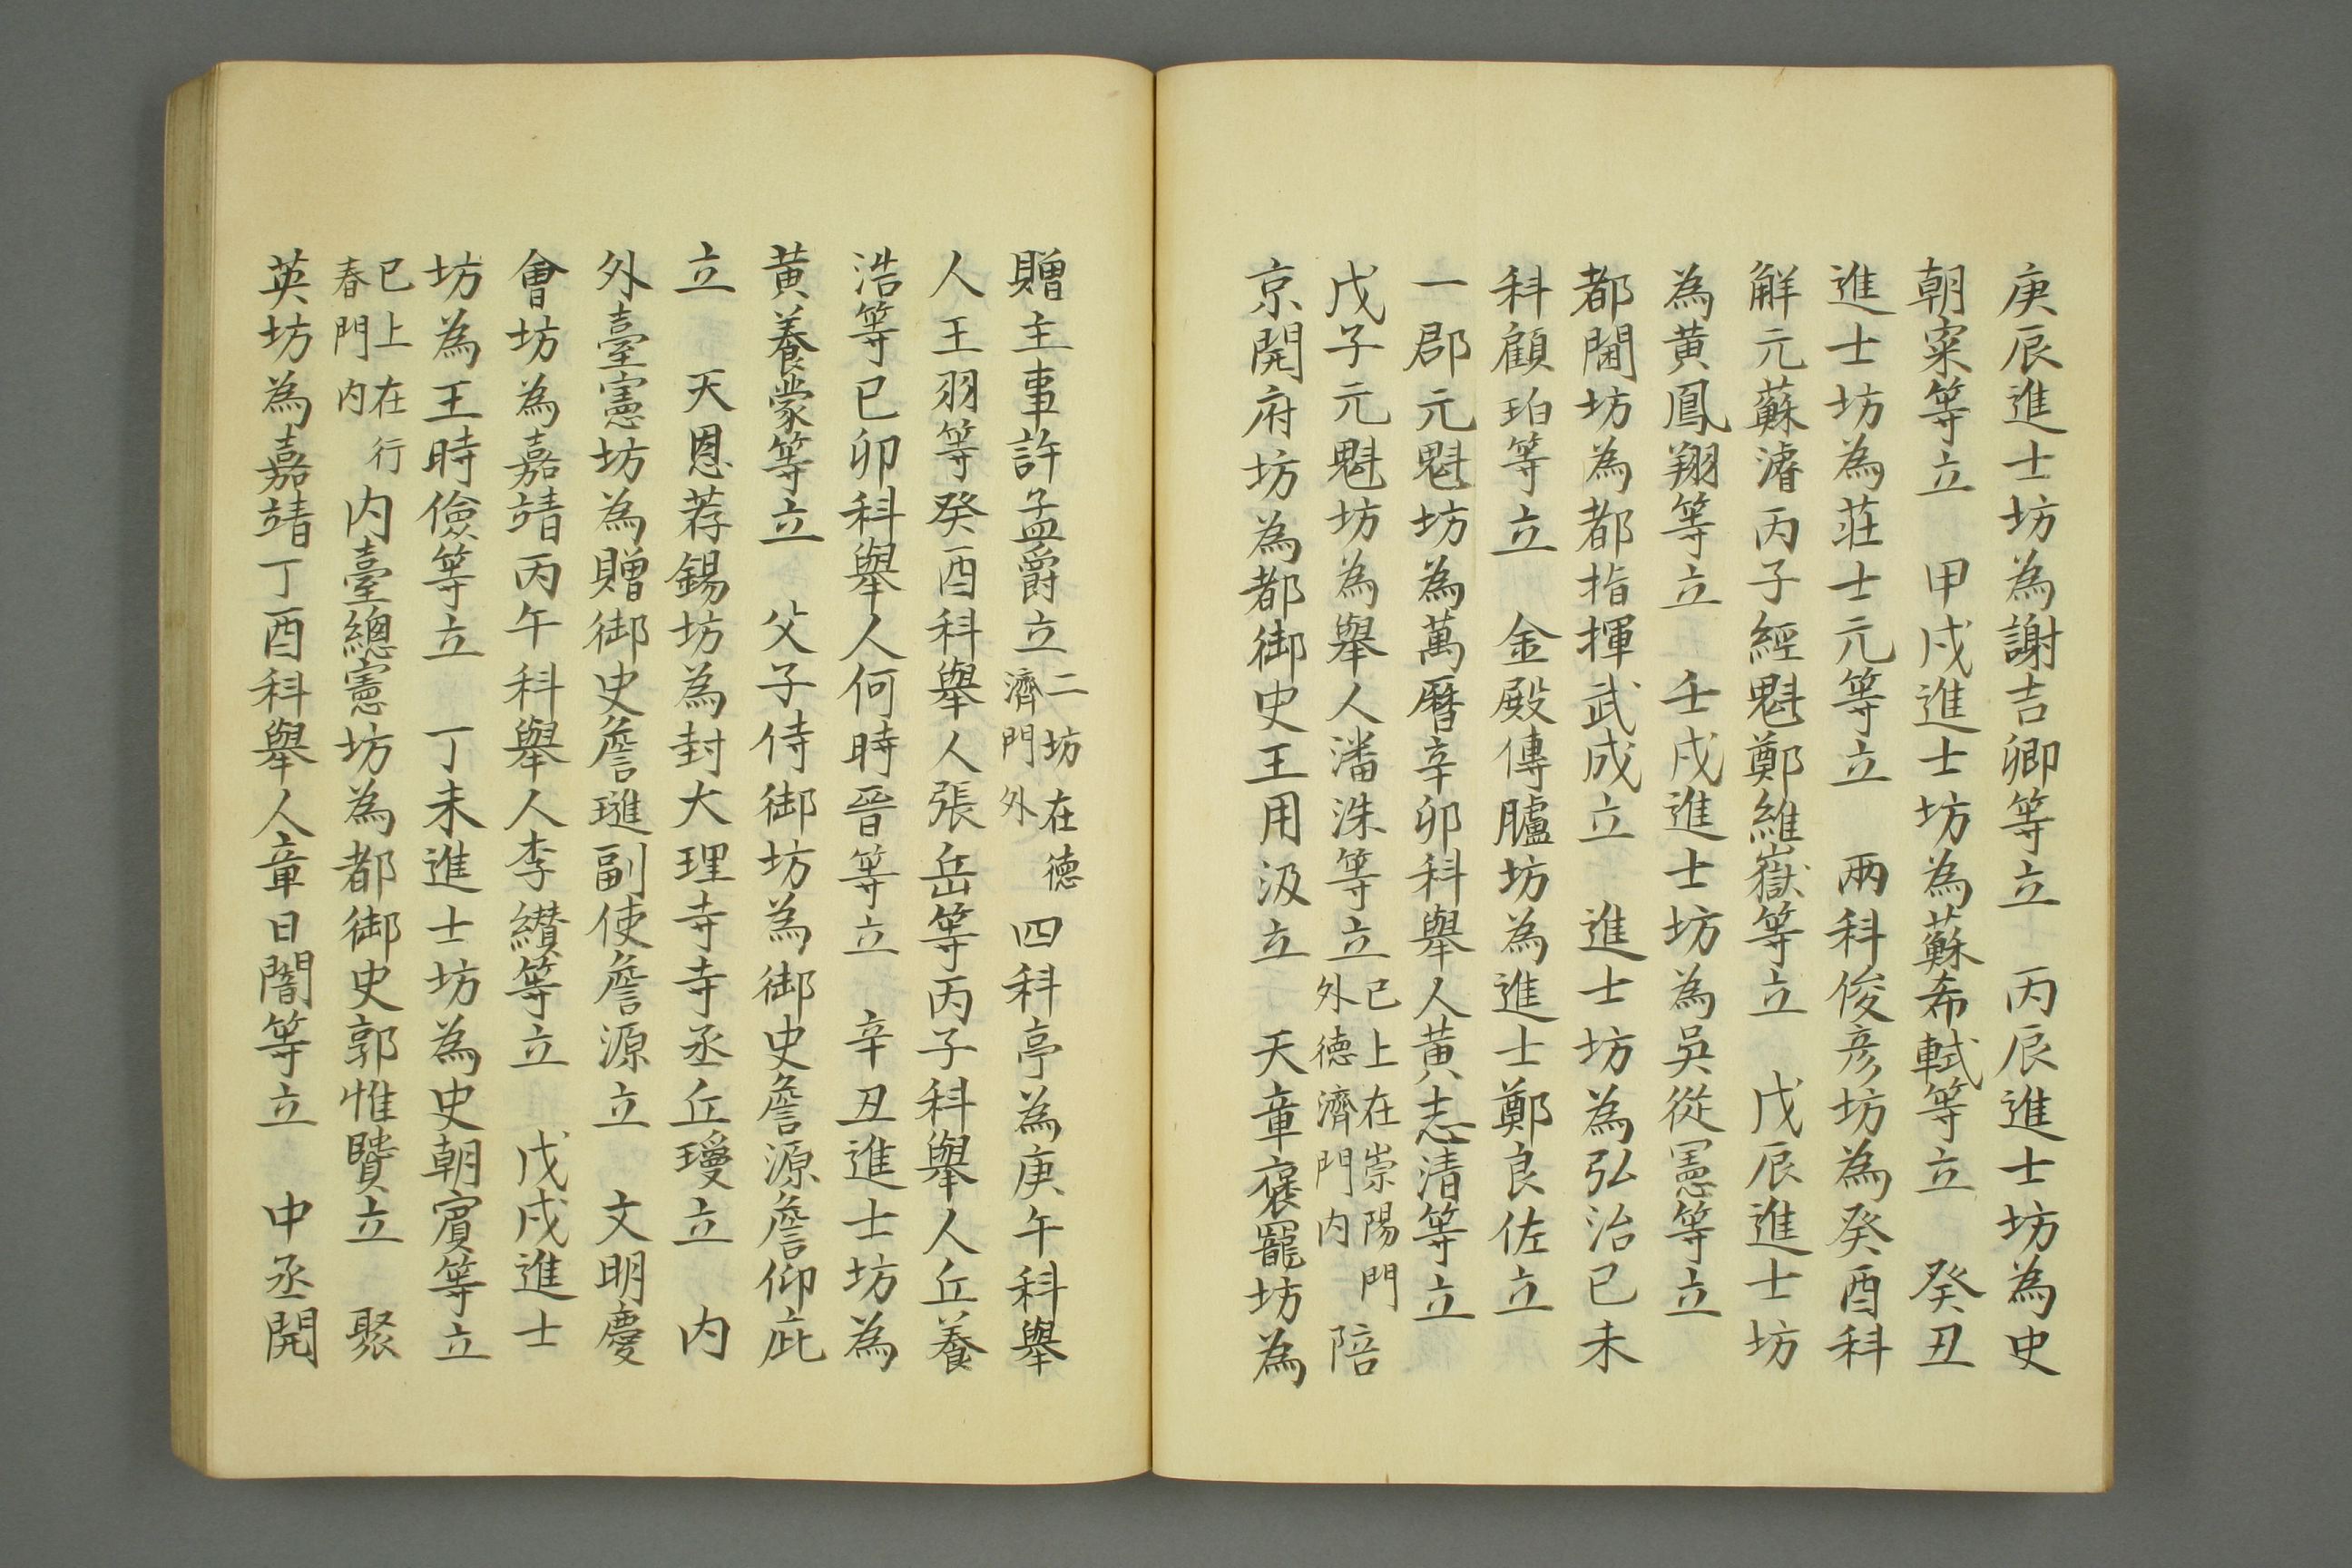 庚辰進士坊為謝吉卿等立　丙辰進士坊為史
朝寀等立　甲戌進士坊為蘇希軾等立　癸丑
進士坊為莊士元等立　兩科俊彦坊為癸酉科
解元蘇濬丙子經魁鄭維嶽等立　戊辰進士坊
為黄鳳翔等立　壬戌進士坊為吳從憲等立
都閫坊為都指揮武成立　進士坊為弘治已未
科顧珀等立　金殿傳臚坊為進士鄭良佐立
一郡元魁坊為萬曆辛卯科舉人黄志清等立
戊子元魁坊為舉人潘洙等立已上在崇陽門外德濟門内　陪
京開府坊為都御史王用汲立　天章褒寵坊為
贈主事許孟爵立二坊在德濟門外　四科亭為庚午科舉
人王羽等癸酉科舉人張岳等丙子科舉人丘養
浩等已卯科舉人何時晉等立　辛丑進士坊為
黄養蒙等立　父子侍御坊為御史詹源詹仰庇
立　天恩荐錫坊為封大理寺寺丞丘璦立　内
外臺憲坊為贈御史詹璡副使詹源立　文明慶
會坊為嘉靖丙午科舉人李纘等立　戊戌進士
坊為王時儉等立　丁未進士坊為史朝賓等立
已上在行春門内　内臺總憲坊為都御史郭惟贒立　聚
英坊為嘉靖丁酉科舉人章日闇等立　中丞開